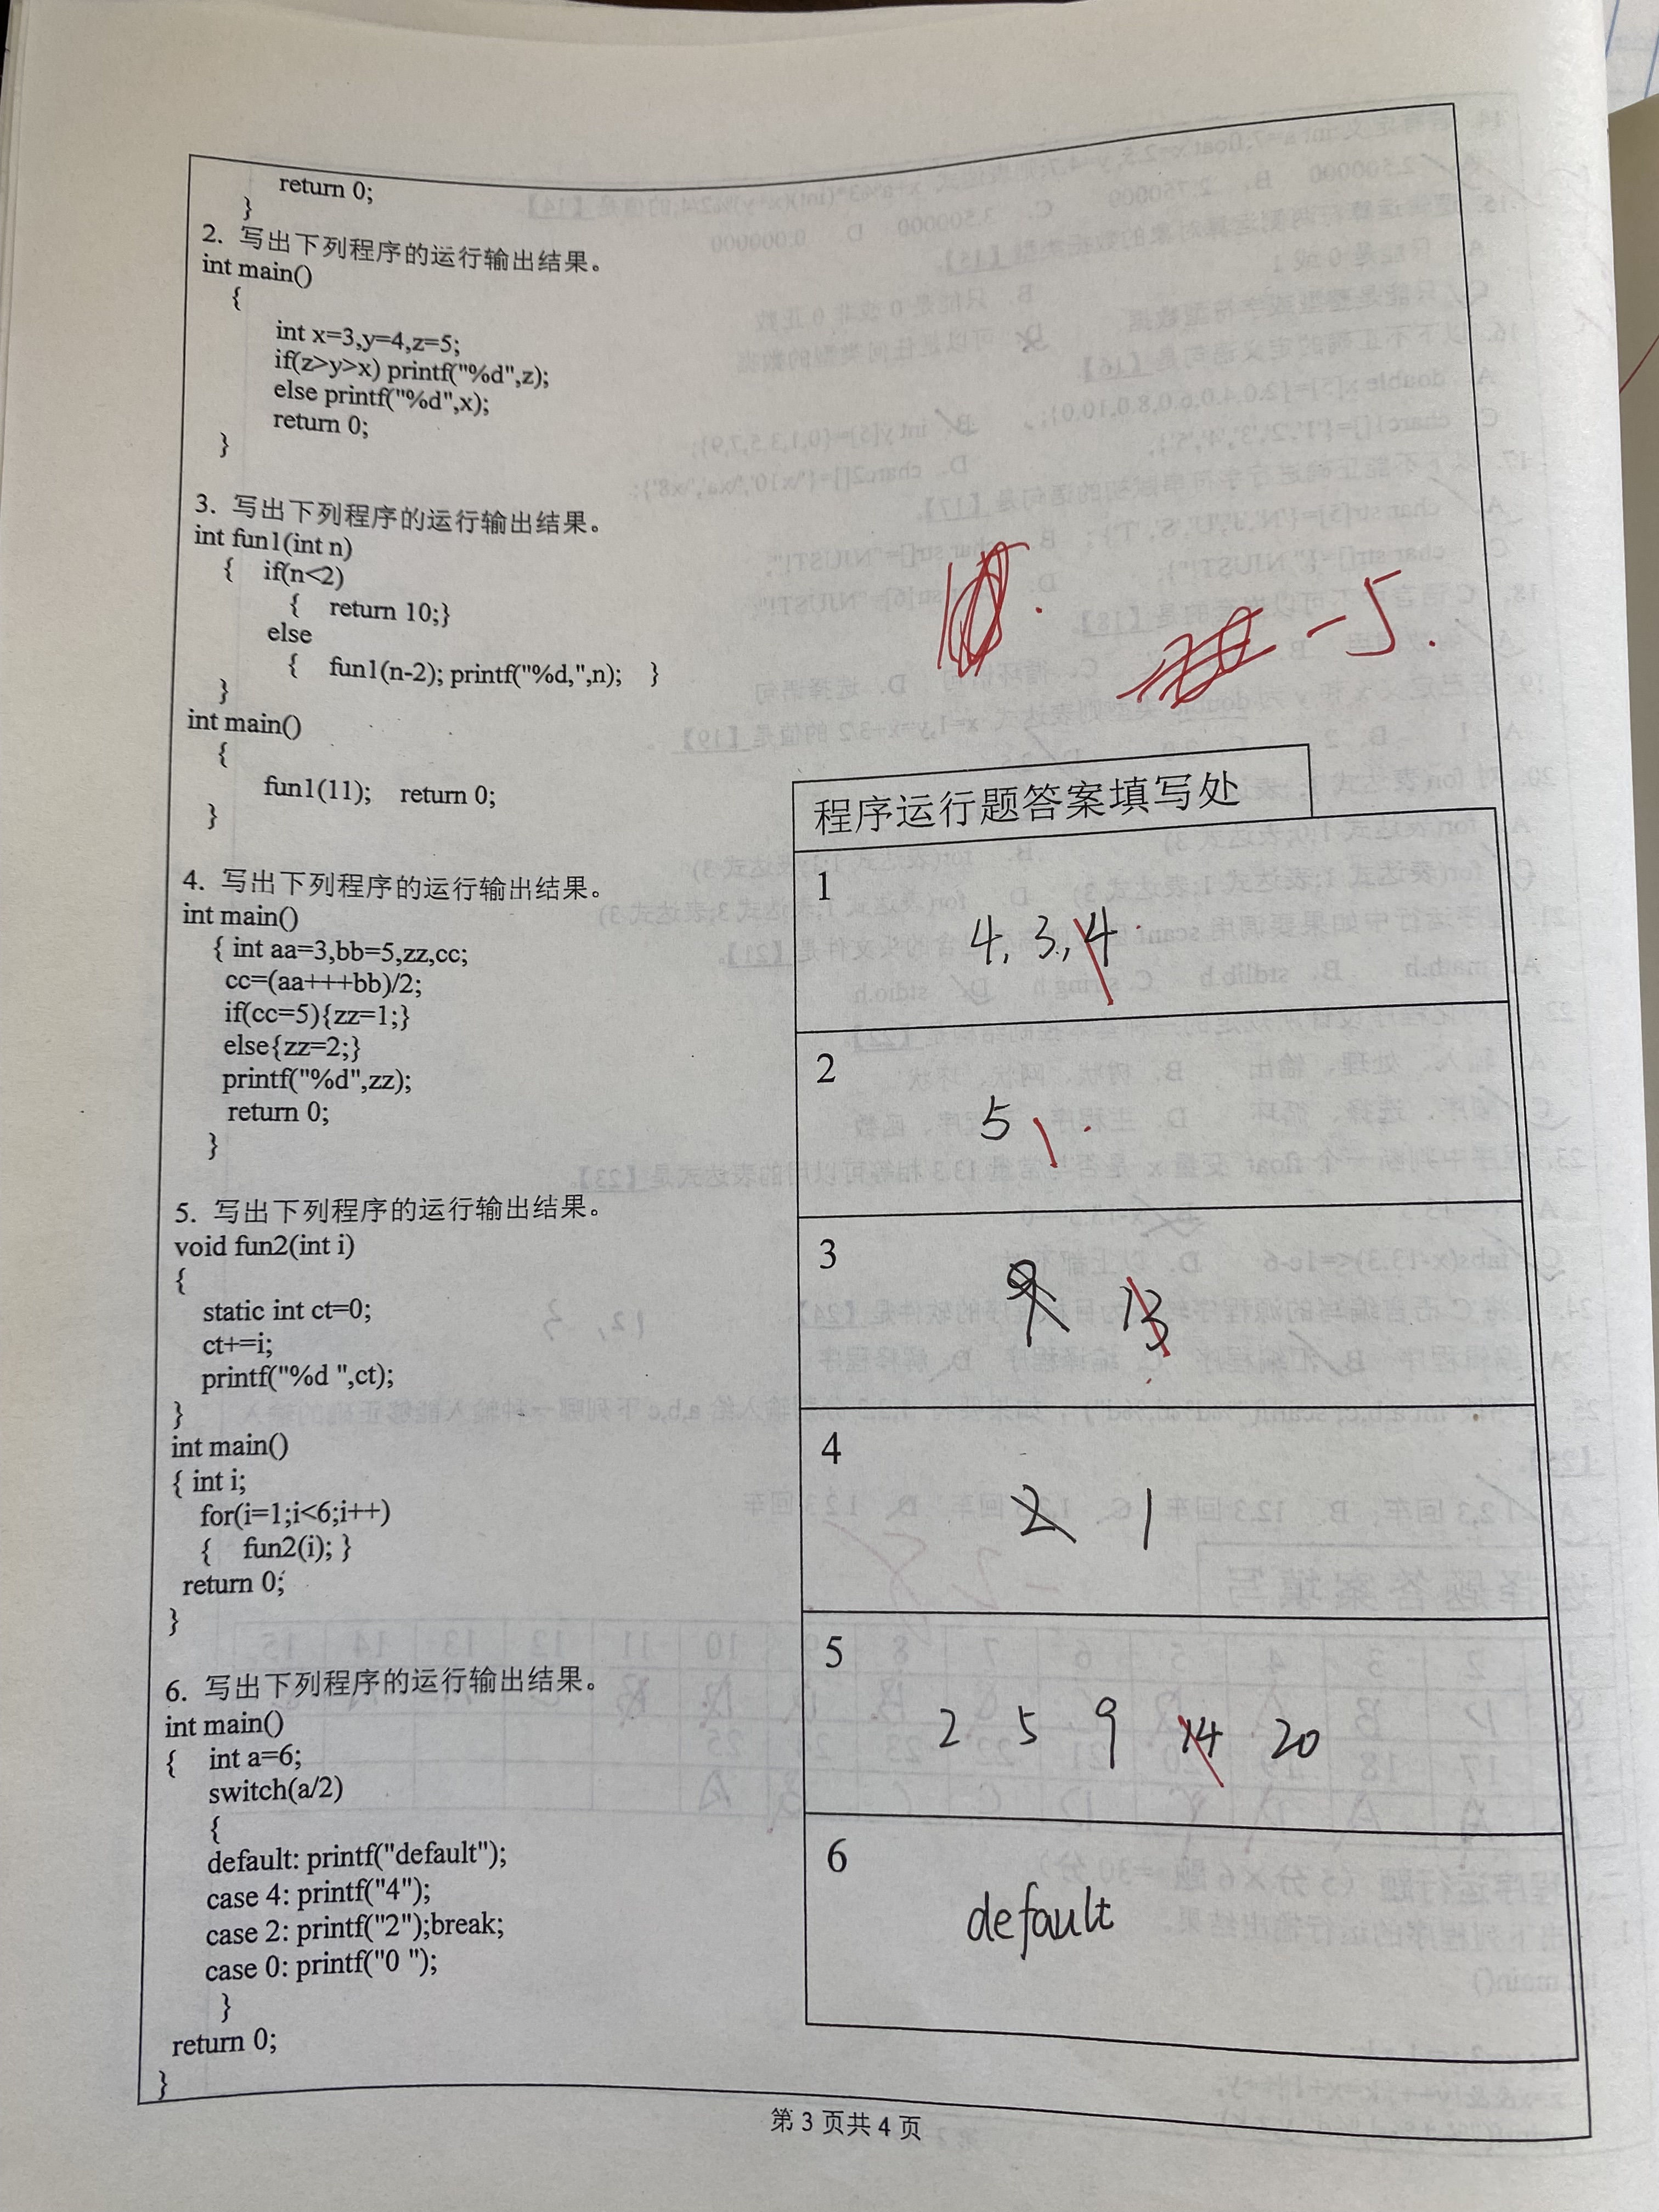 return 0;
}
2. 写出下列程序的运行输出结果。
int main()
{
int x=3,y=4,z=5;
if(z>y>x) printf("%d",z);
else printf("%d",x);
return 0;
}
3. 写出下列程序的运行输出结果。
int fun1(int n)
{ if(n<2)
{ return 10;}
else
{ fun1(n-2); printf("%d,",n); }
}
int main()
{
fun1(11); return 0;
}
4. 写出下列程序的运行输出结果。
int main()
{ int aa=3,bb=5,zz,cc;
cc=(aa+++bb)/2;
if(cc=5){zz=1;}
else{zz=2;}
printf("%d",zz);
return 0;
}
5. 写出下列程序的运行输出结果。
void fun2(int i)
{
static int ct=0;
ct+=i;
printf("%d ",ct);
}
int main()
{ int i;
for(i=1;i<6;i++)
{ fun2(i); }
return 0;
}
6. 写出下列程序的运行输出结果。
int main()
{ int a=6;
switch(a/2)
{
default: printf("default");
case 4: printf("4");
case 2: printf("2");break;
case 0: printf("0 ");
}
return 0;
}
-5.
程序运行题答案填写处
1
4, 3, 4
2
5
3
9 13
4
2 1
5
2 5 9 14 20
6
default
第 3 页共 4 页